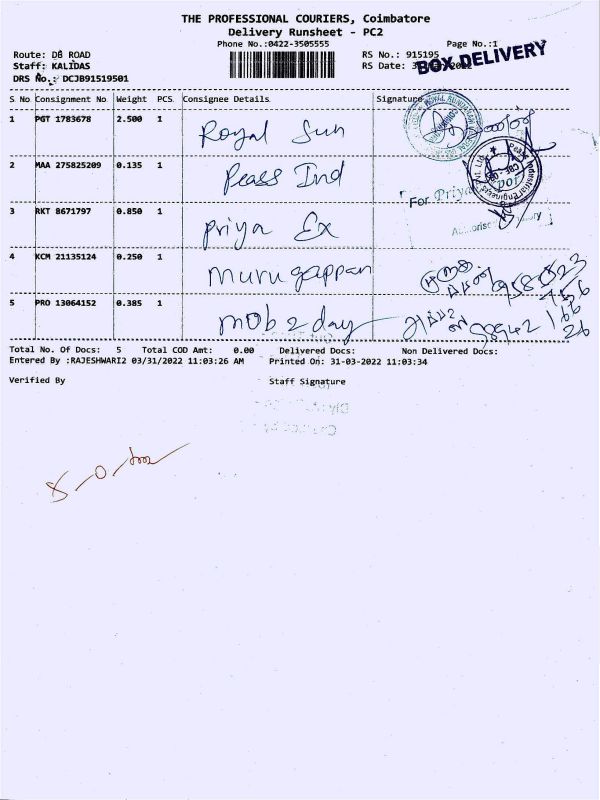 THE PROFESSIONAL COURIERS, Coimbatore
Delivery Runsheet - PC2
Phone No.:0422-3505555
Page No.:1
Route: DB ROAD
RS No.: 915195
BOX DELIVERY
Staff: KALIDAS
RS Date: 2022
DRS No.: DCJB91519501
S No Consignment No Weight PCS Consignee Details Signature
1 PGT 1783678 2.500 1 Royal Sun
2 MAA 275825209 0.135 1 Peass Ind
For Priya
3 RKT 8671797 0.850 1 Priya Ex
4 KCM 21135124 0.250 1 Murugappan
5 PRO 13064152 0.385 1 Mob 2 day
Total No. Of Docs: 5 Total COD Amt: 0.00 Delivered Docs: Non Delivered Docs:
Entered By :RAJESHWARI2 03/31/2022 11:03:26 AM Printed On: 31-03-2022 11:03:34
Verified By Staff Signature